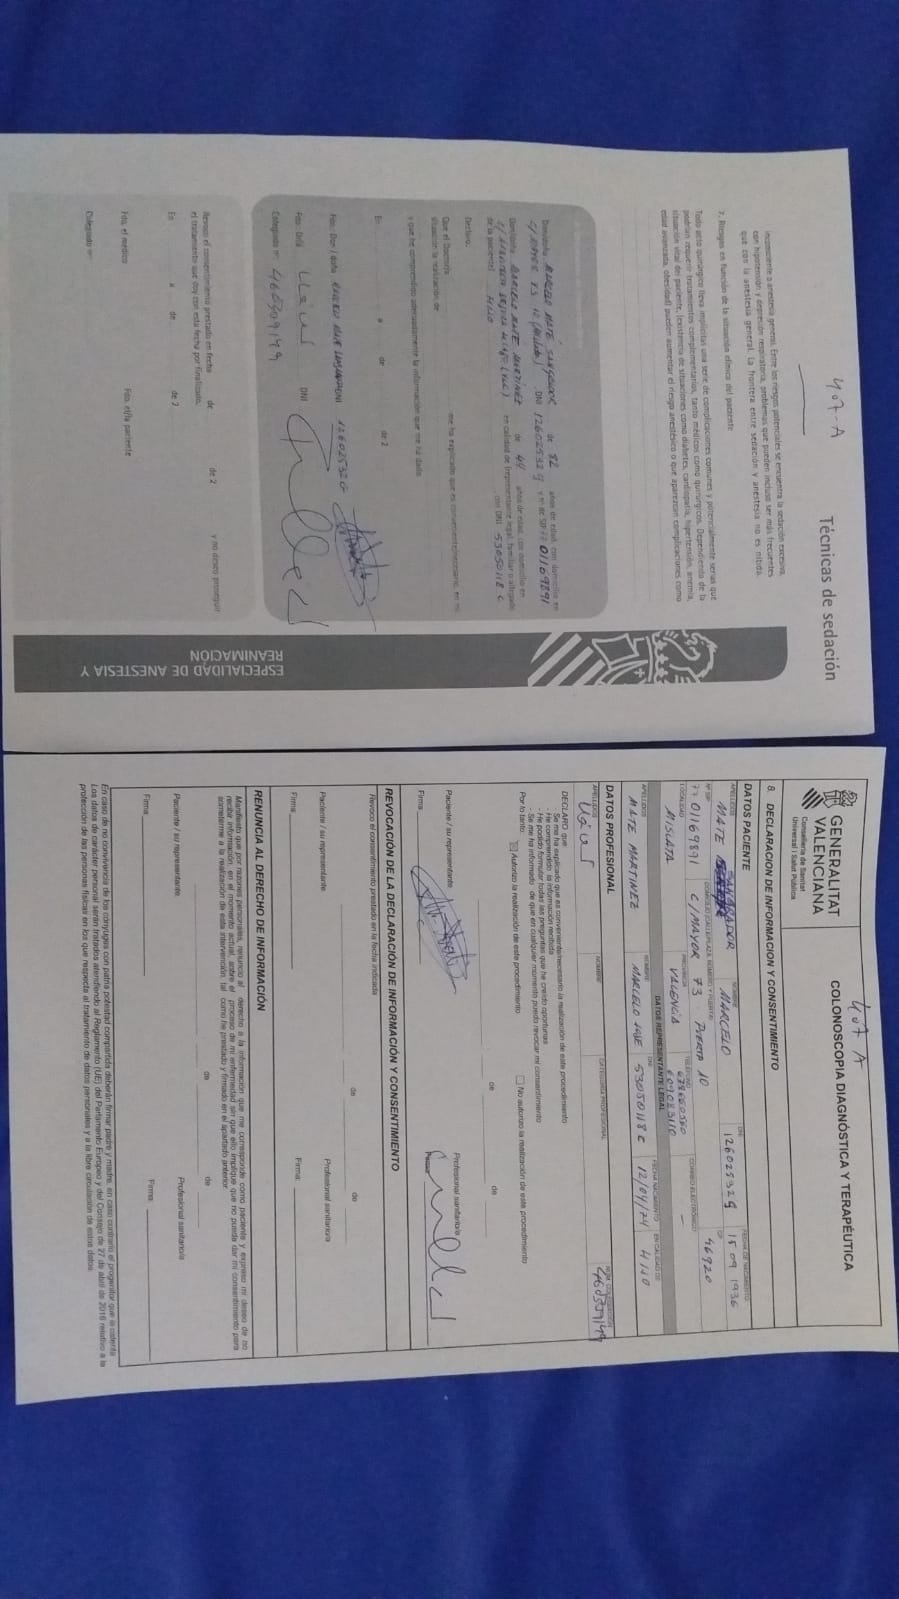 407-A
Técnicas de sedación
inconsciente o anestesia general. Entre los riesgos potenciales se encuentra la sedación excesiva,
con hipotensión y depresión respiratoria, problemas que pueden incluso ser más frecuentes
que con la anestesia general. La frontera entre sedación y anestesia no es nítida.
7. Riesgos en función de la situación clínica del paciente
Todo acto quirúrgico lleva implícitas una serie de complicaciones comunes y potencialmente serias que
podrían requerir tratamientos complementarios, tanto médicos como quirúrgicos. Dependiendo de la
situación vital del paciente, (existencia de situaciones como diabetes, cardiopatía, hipertensión, anemia,
edad avanzada, obesidad) pueden aumentar el riesgo anestésico o que aparezcan complicaciones como
Don/doña MARCELO MATÉ SANGRADOR de 82 años de edad, con domicilio en
C/ MAYOR 73 10 (Mislata), DNI 12602532 G y nº de SIP 77 01169891
Don/doña MARCELO MATE MARTINEZ de 44 años de edad, con domicilio en
en calidad de (representante legal, familiar o allegado
de la paciente) HIJO con DNI 53050118 C
Declaro:
Que el Doctor/a me ha explicado que es conveniente/necesario, en mi
situación la realización de
y que he comprendido adecuadamente la información que me ha dado.
En a de de 2
Fdo: Don / doña DNI 12602532 G
Fdo: Dr/a DNI
Colegiado nº: 460309149
Revoco el consentimiento prestado en fecha de de 2 y no deseo proseguir
el tratamiento que doy con esta fecha por finalizado.
En a de de 2
Fdo. el médico Fdo. el/la paciente
Colegiado nº:
ESPECIALIDAD DE ANESTESIA Y
REANIMACIÓN
407 A
GENERALITAT
VALENCIANA
Conselleria de Sanitat
Universal i Salut Pública
COLONOSCOPIA DIAGNÓSTICA Y TERAPÉUTICA
8. DECLARACION DE INFORMACION Y CONSENTIMIENTO
DATOS PACIENTE
APELLIDOS NOMBRE DNI FECHA DE NACIMIENTO
MATE SANGRADOR MARCELO 12602532G 15 09 1936
Nº SIP DOMICILIO (CALLE/PLAZA, NÚMERO Y PUERTA) TELÉFONO CORREO ELECTRÓNICO CP
77 01169891 C/ MAYOR 73 PUERTA 10 46920
LOCALIDAD PROVINCIA
MISLATA VALENCIA 609083110 —
DATOS REPRESENTANTE LEGAL
APELLIDOS NOMBRE DNI FECHA NACIMIENTO EN CALIDAD DE
MATE MARTINEZ MARCELO JOSE 53050118 C 12/04/74 HIJO
DATOS PROFESIONAL
APELLIDOS NOMBRE CATEGORÍA PROFESIONAL NÚM. COLEGIACIÓN
DECLARO que:
- Se me ha explicado que es conveniente/necesario la realización de este procedimiento
- He comprendido la información recibida
- He podido formular todas las preguntas que he creído oportunas
- Se me ha informado de que en cualquier momento puedo revocar mi consentimiento
Por lo tanto: Autorizo la realización de este procedimiento No autorizo la realización de este procedimiento
de de
Paciente / su representante Profesional sanitario/a
Firma
REVOCACIÓN DE LA DECLARACIÓN DE INFORMACIÓN Y CONSENTIMIENTO
Revoco el consentimiento prestado en la fecha indicada
de de
Paciente / su representante Profesional sanitario/a
Firma Firma:
RENUNCIA AL DERECHO DE INFORMACIÓN
Manifiesto que por razones personales, renuncio al derecho a la información que me corresponde como paciente y expreso mi deseo de no
recibir información, en el momento actual, sobre el proceso de mi enfermedad sin que ello implique que no pueda dar mi consentimiento para
someterme a la realización de esta intervención, tal como he prestado y firmado en el apartado anterior.
de de
Paciente / su representante Profesional sanitario/a
Firma Firma
En caso de no convivencia de los cónyuges con patria potestad compartida deberán firmar padre y madre, en caso contrario el progenitor que la ostenta
Los datos de carácter personal serán tratados atendiendo al Reglamento (UE) del Parlamento Europeo y del Consejo de 27 de abril de 2016 relativo a la
protección de las personas físicas en lo que respecta al tratamiento de datos personales y a la libre circulación de estos datos.